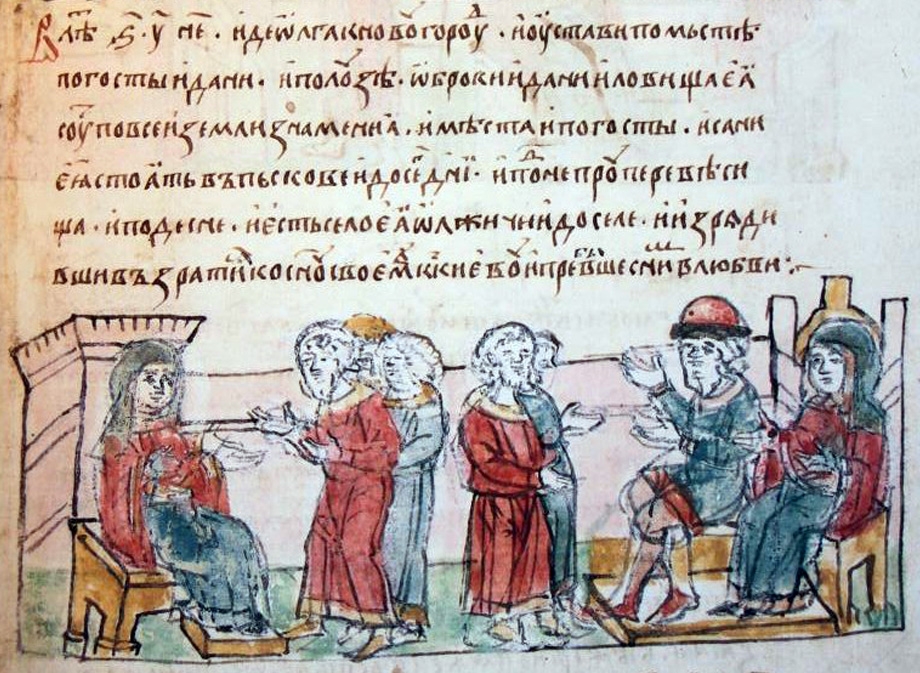 В лѣ҇т ҂ѕ҃ у҃ н҃е · идеѡлгакновогороуⷣ · ноуⷭ҇ставипомьстѣ
погостыидани · иполоузѣ · ѡброкииданииловищаеꙗ
соуⷮповсеиземлизнамениꙗ · имѣстаипогосты · исани
еꙗстоꙗтьвъпьсковеидосегⷣни · ипоⷣнепроуперевѣси
ща · иподесне · иестьселоеꙗѡлжичиидоселе · иизряди
вшивъзратиⷭ҇ксноусвоемоукъкиевоуипребⷡывшеснимвлюбви